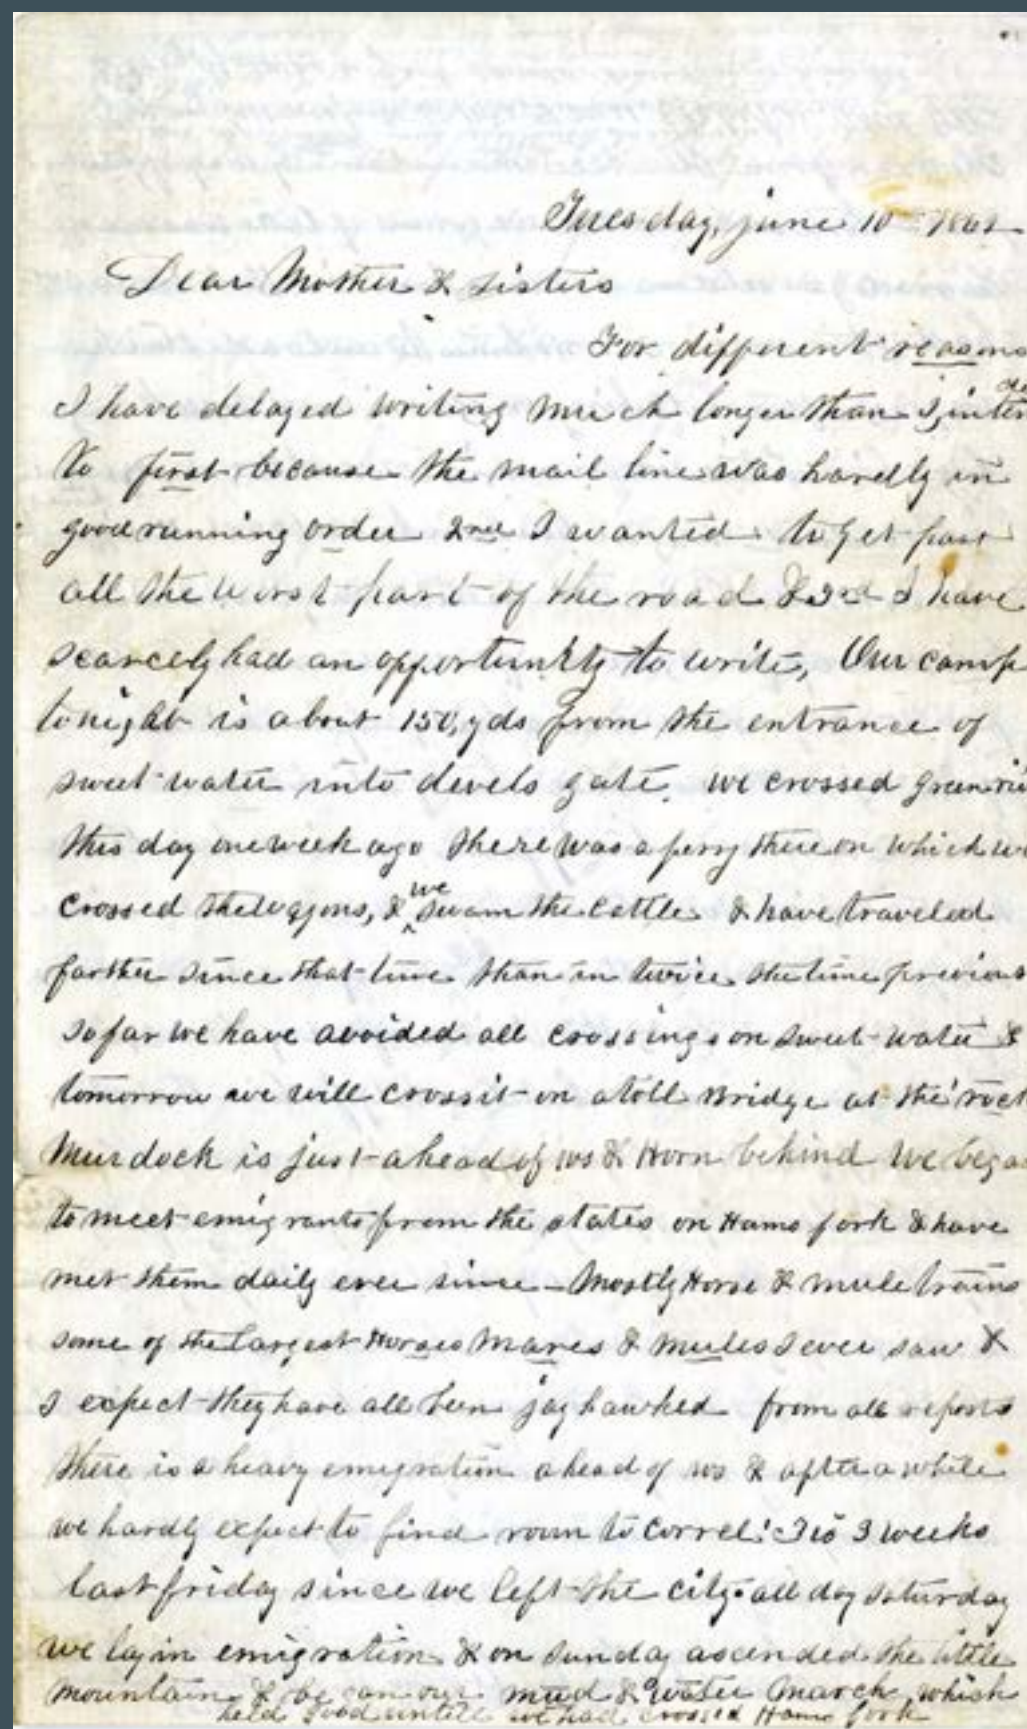 Tuesday, june 10th 1862
Dear Mother & sisters
For different reasons
I have delayed writing much longer than I, inten
ded
to first because the mail line was hardly in
good running order 2nd I wanted to get past
all the worst part of the road & 3rd I have
scarcely had an opportunity to write, Our camp
tonight is about 150, yds from the entrance of
sweet water into devels gate. we crossed green riv
this day one week ago there was a ferry there on which we
crossed the wagons, & we swam the cattle & have traveled
farther since that time than in twice the time previous
so far we have avoided all crossings on sweet water &
tomorrow we will cross it on a toll Bridge at the rock
Murdock is just ahead of us & Horn behind We began
to meet emigrants from the states on Hams fork & have
met them daily ever since - Mostly Horse & mule trains
some of the largest Horses Mares & mules I ever saw &
I expect they have all been jay hawked from all reports
there is a heavy emigration ahead of us & after a while
we hardly expect to find room to correl: Tis 3 weeks
last friday since we left the city. all day saturday
we lay in emigration & on Sunday ascended the little
mountain & began our mud & water March which
held good untill we had crossed Hams fork